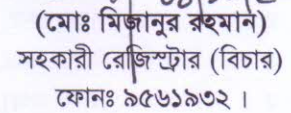 (মোঃ মিজানুর রহমান)
সহকারী রেজিস্ট্রার (বিচার)
ফোনঃ ৯৫৬১৯৩২ ।